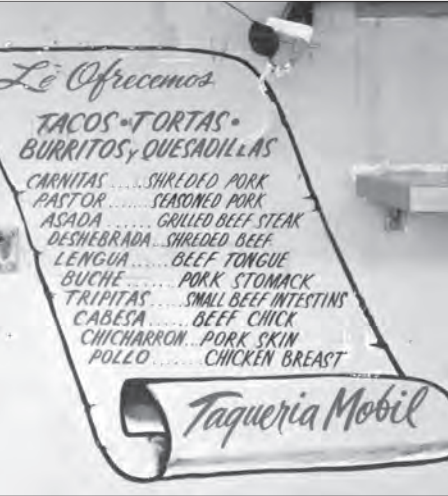 Lé Ofrecemos
TACOS • TORTAS •
BURRITOS y QUESADILLAS
CARNITAS.....SHREDED PORK
PASTOR......SEASONED PORK
ASADA......GRILLED BEEF STEAK
DESHEBRADA..SHREDED BEEF
LENGUA......BEEF TONGUE
BUCHE......PORK STOMACK
TRIPITAS.....SMALL BEEF INTESTINS
CABESA......BEEF CHICK
CHICHARRON...PORK SKIN
POLLO.......CHICKEN BREAST
Taqueria Mobil